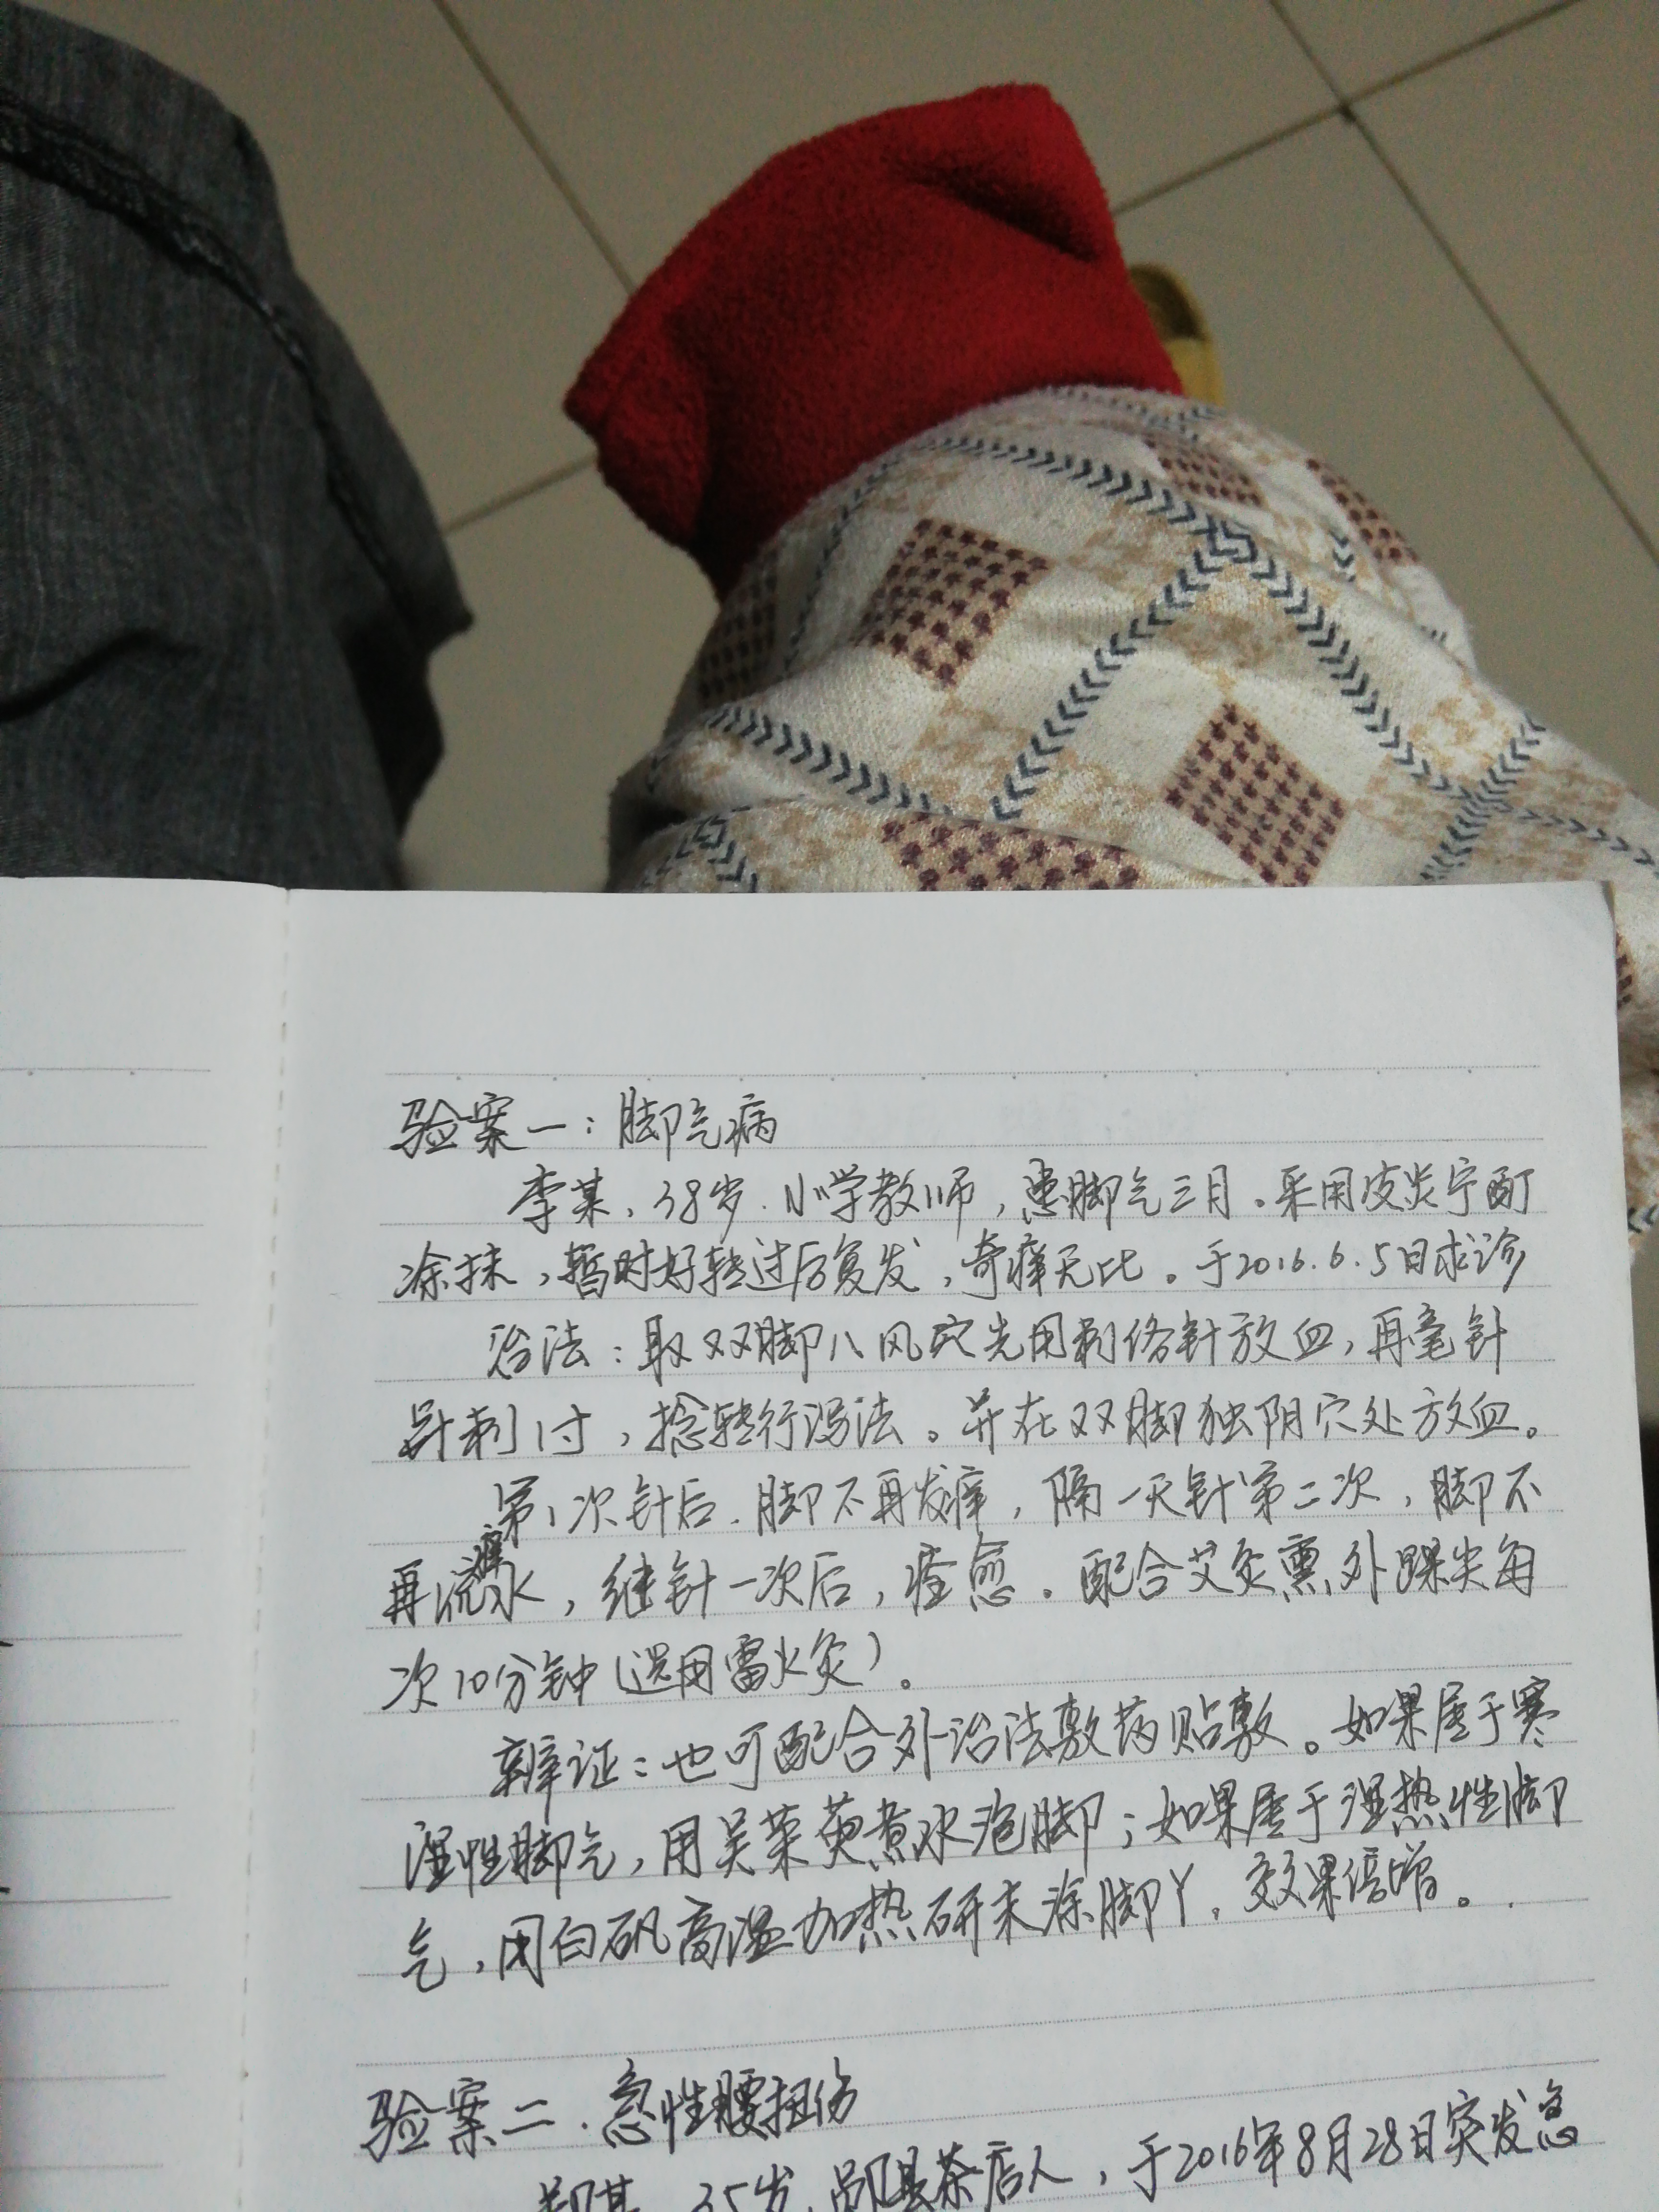 验案一：脚气病
李某、38岁.小学教师，患脚气三月。采用皮炎宁酊
涂抹，暂时好转过后复发，奇痒无比。于2016.6.5日求诊
治法：取双脚八风穴先用刺络针放血，再毫针
针刺1寸，捻转行泻法。并在双脚独阴穴处放血。
第1次针后.脚不再发痒，隔一天针第二次，脚不
再流水，继针一次后，痊愈。配合艾灸熏外踝尖每
次10分钟（选用雷火灸）。
辨证：也可配合外治法敷药贴敷。如果属于寒
湿性脚气，用吴茱萸煮水泡脚；如果属于湿热性脚
气，用白矾高温加热研末涂脚丫，效果倍增。
验案二.急性腰扭伤
某、35岁.县茶店人，于2016年8月28日突发急